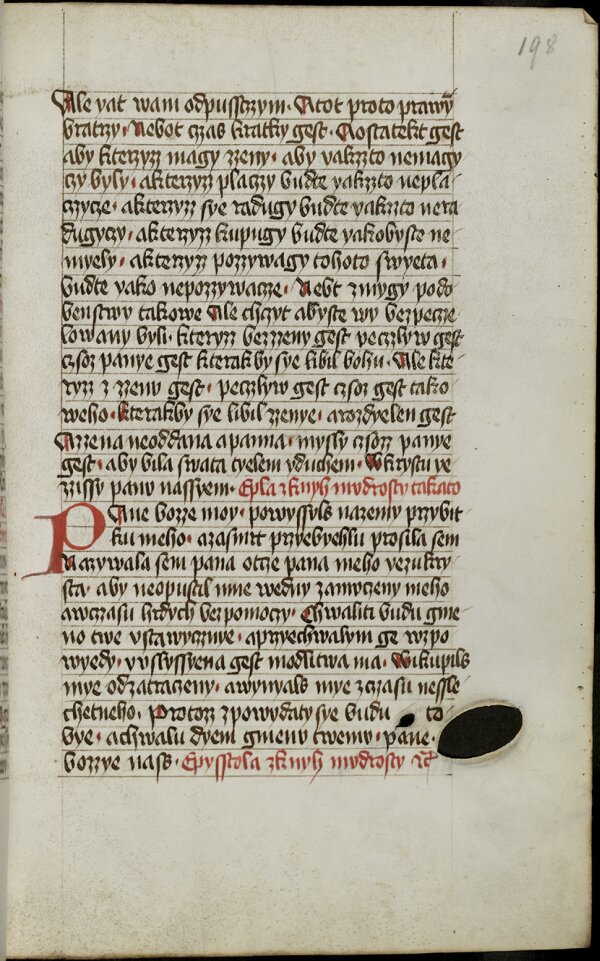 198
Ale yat wam odpusstzym. Atot proto prawỹ
bratrzy. Nebot czas kratky gest. Aostatekt gest
aby kterzyzz magy zzeny. aby yakzzto nemagy
czy byly. akterzyzz placzy budte yakzzto nepla
czycze. akterzyzz sye radugy budte yakzzto nera
dugyczy. akterzyzz kupugy budte yakobyste ne
myely. akterzyzz pozzywagy tohoto swyeta.
budte yako nepozzywacze. Nebt zmygy podo
benstwy takowe Ale chczyt abyste wy bezpecze
lowany byli. kteryzz bezzeny gest peczlyw gest
czsoz panye gest kterak by sye libil bohu. Ale kte
ryzz z zzenu gest. peczlyw gest czsoz gest tako
weho. kterakby sye libil zzenye. arozdyelen gest
Azzena neoddana apanna. mysly czsozz panye
gest. aby bila swata tyelem yduchem. Wkrystu ye
zzissy panu nassyem. Epla zknyh mudrosty takato
PAne bozze moy. powyssyls nazemy przybit
ku meho. azasmrt przyebyehlu prosila sem
Nazywala sem pana otcze pana meho yezukry
sta. aby neopustil mne wedny zamuczeny meho
awczasu hrdych bezpomoczy. Chwaliti budu gme
no twe ustawycznye. aprzyechwalym ge wzpo
wyedy. uslyssyena gest modlitwa ma. Wikupils
mye odzatraczeny. awynyals mye zczasu nessle
chetneho. Protozz zpowydaty sye budu to
bye. achwalu dyem gmenu twemu. pane.
bozzye nass. Epysstola zknyh mudrosty &c